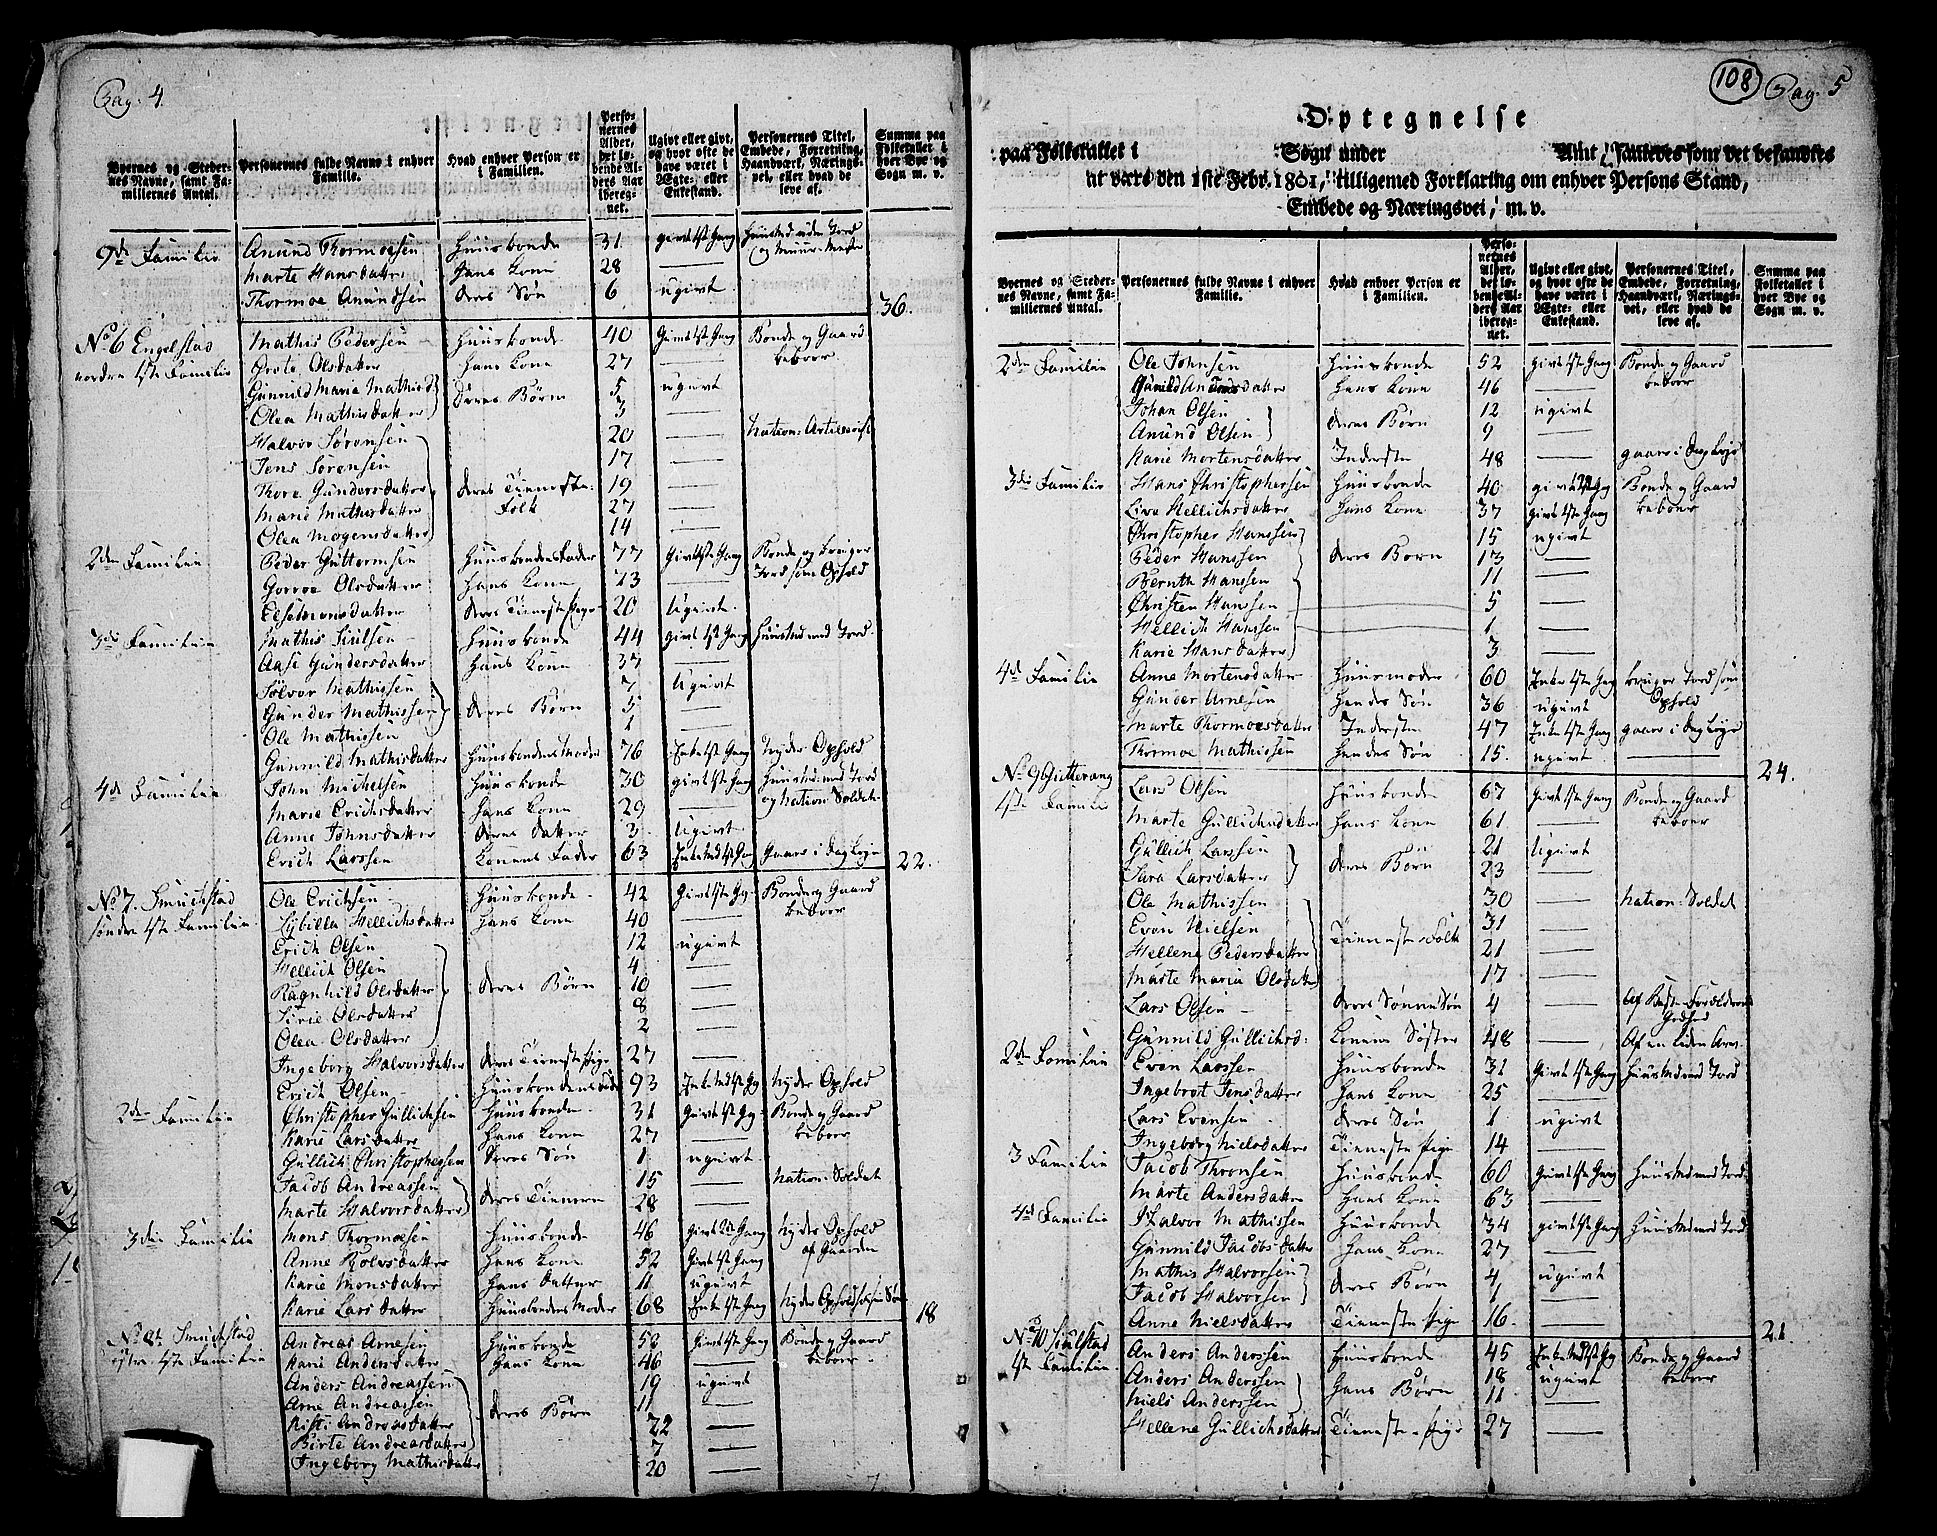 Pag. 4
Byernes og Steder-
nes Navne, samt Fa-
miliernes Antal.
Personernes fulde Navne i enhver
Familie.
Hvad enhver Person er
i Familien.
Perso-
nernes
Alder,
det lø-
bende Al-
ders Aar
iberegnet.
Ugivt eller givt,
og hvor ofte de
have været i
Ægte- eller
Enkestand.
Personernes Titel,
Embede, Forretning,
Haandværk, Nærings-
vei, eller hvad de
leve af.
Summa paa
Folketallet i
hver Bye og
Sogn m. v.
9de Familie Amund Thormoesen Huusbonde 31 givt 1ste Gang Huusmd uden Jord
Marte Hansdatter Hans Kone 28 — og Muur-Mester
Thormoe Amundsen deres Søn 6 ugivt
36.
No 6 Engelstad Mathis Pedersen Huusbonde 40 Givt 1ste Gang Bonde og Gaard
nordre 1ste Familie Grete Olsdatter Hans Kone 27 — beboer
Gunnild Maria Mathisd. deres Børn 5 ugivt
Olea Mathisdatter 3 —
Halvor Sørensen 20 — Nation: Artillerist
Jens Sørensen 17 —
Thore Gundersdatter deres Tieneste- 19 —
Marie Mathisdatter Folk 27 —
Olea Mogensdatter 14 —
2den Familie Peder Guttormsen Huusbondes Fader 77 Givt 1ste Gang Bonde og bruger
Olsdatter Hans Kone 73 — Jord som Ophold
Monsdatter deres Tieneste Pige 20 Ugivt
3die Familie Mathis Huusbonde 44 givt 1ste Gang Huusmd med Jord
Aase Gundersdatter Hans Kone 37 —
Sølvor Mathissen 7 Ugivt
Gunder Mathissen deres Børn 5 —
Ole Mathissen 1 —
Gunnild Mathisdatter Huusbondes Moder 76 Enke 1ste Gang Nyder Ophold
4de Familie John Michelsen Huusbonde 30 givt 1ste Gang Huusmd: med Jord
Marie Erichsdatter Hans Kone 29 — og Nation: Soldat
Anne Johnsdatter deres datter 3 Ugivt
Erich Larssen Konens Fader 63 Enkemd 1ste Gang Gaaer i Dagleje
22.
No 7. Smedstad Ole Erichsen Huusbonde 42 Givt 1ste Gg Bonde og Gaard
søndre 1ste Familie Sybilla Hellichsdatter Hans Kone 40 — beboer
Erich Olsen 12 ugivt
Hellich Olsen 4 —
Ragnhild Olsdatter deres Børn 10 —
Sirie Olsdatter 8 —
Olea Olsdatter 2 —
Ingeborg Halvorsdatter deres Tieneste Pige 27 —
Erich Olsen Huusbondens Fader 93 Enkemd 1ste Gg Nyder Ophold
2den Familie Christopher Gullichsen Huusbonde 31 Givt 1ste Gg Bonde og Gaard
Karie Larsdatter Hans Kone 27 — beboer
Gullich Christophersen deres Søn 1 ugivt
Jacob Andreassen 15 — Nation: Soldat
Marte Halvorsdatter deres Tienere 28 —
3die Familie Mons Thormoesen Huusbonde 46 Givt 2den Gang Nyder Ophold
Anne Rolvsdatter Hans Kone 52 Givt 1ste Gang af Gaarden
Karie Monsdatter Hans datter 11 ugivt
Karie Larsdatter Huusbondes Moder 68 Enke 1ste Gang Nyder Ophold
18
No 8de Smedstad Andreas Arnesen Huusbonde 53 Givt 1ste Gang Bonde og Gaard
østre 1ste Familie Karie Andersdatter Hans Kone 46 — beboer
Anders Andreassen 19 ugivt
Arne Andreassen 11 —
Kisti Andreasdatter deres Børn 22 —
Birte Andreasdatter 7 —
Ingeborg Mathisdatter 20 —
108
Pag. 5
Optegnelse
paa Folketallet i Sogn under Amt, saaledes som det befandtes
at være den 1ste Febr. 1801, tilligemed Forklaring om enhver Persons Stand,
Embede og Næringsvei, m. v.
Byernes og Steder-
nes Navne, samt Fa-
miliernes Antal.
Personernes fulde Navne i enhver
Familie.
Hvad enhver Person er
i Familien.
Perso-
nernes
Alder,
det lø-
bende Al-
ders Aar
iberegnet.
Ugivt eller givt,
og hvor ofte de
have været i
Ægte- eller
Enkestand.
Personernes Titel,
Embede, Forretning,
Haandværk, Nærings-
vei, eller hvad de
leve af.
Summa paa
Folketallet i
hver Bye og
Sogn m. v.
2den Familie Ole Johnsen Huusbonde 52 givt 1ste Gang Bonde og Gaard
Gunild Amundsdatter Hans Kone 46 — beboer
Johan Olsen deres Børn 12 ugivt
Amund Olsen 9 —
Karie Mortensdatter Inderste 48 — gaaer i Dagleje
3die Familie Hans Christophersen Huusbonde 40 givt 2den Gg Bonde og Gaard
Liva Hellichsdatter Hans Kone 37 Givt 1ste Gang beboer
Christopher Hanssen 15 ugivt
Peder Hanssen deres Børn 13 —
Bernth Hanssen 11 —
Christen Hanssen 5 —
Hellich Hanssen 1 —
Karie Hansdatter 3 —
4de Familie Anne Mortensdatter Huusmoder 60 Enke 1ste Gang bruger Jord som
Gunder Arnesen Hendes Søn 36 ugivt Ophold
Marte Thormoesdatter Inderste 47 Enke 1ste Gang gaaer i Dagleje
Thormoe Mathissen Hendes Søn 15. ugivt —
24.
No 9 Gutterang Lars Olsen Huusbonde 67 Givt 1ste Gang Bonde og Gaard
1ste Familie Marte Gullichsdatter Hans Kone 61 — beboer
Gullich Larssen deres Børn 21 Ugivt
Sara Larsdatter 23 —
Ole Mathissen 30 — Nation: Soldat
Even Nielsen Tieneste-Folk 31 —
Hellene Pedersdatter 21 —
Marte Maria Olsdatter 17 —
Lars Olsen deres Sønne Søn 4 — Af Forældrenes
Godhed
Gunnild Gullichsd: Konens Søster 48 — Af en liden Arv
2den Familie Even Larssen Huusbonde 31 Givt 1ste Gang Huusmd med Jord
Ingebret Jensdatter Hans Kone 25 —
Lars Evensen deres Søn 1 ugivt
Ingeborg Nielsdatter Tieneste Pige 14 —
3 Familie Jacob Thronsen Huusbonde 60 Givt 1ste Gang Huusmd med Jord
Marte Andersdatter Hans Kone 63 —
4de Familie Halvor Mathissen Huusbonde 34 givt 1ste Gang Huusmd med Jord
Gunnild Jacobsdatter Hans Kone 27 —
Mathis Halvorsen deres Børn 4 ugivt
Jacob Halvorsen 1 —
Anne Nielsdatter Tieneste Pige 16. —
21
No 10 Anders Anderssen Huusbonde 45 Enkemd 1ste Gg Bonde og Gaard
1ste Familie Anders Anderssen Hans Børn 18 ugivt beboer
Niels Anderssen 11 —
Hellene Gullichsdatter Tieneste-Pige 27 —